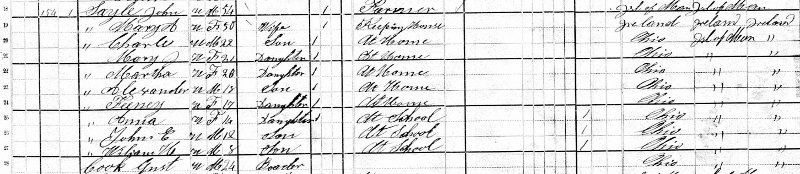 18 154 1 Sayle John W M 54 1 Farmer Isl of Man Isl of Man
19 " Mary A W F 50 Wife 1 Keeping House Ireland Ireland Ireland
20 " Charle W M 22 Son 1 At Home Ohio Isl of Man "
21 " Mary J W F 20 Daughter 1 At Home Ohio " "
22 " Martha W F 20 Daughter 1 At Home Ohio " "
23 " Alexander W M 18 Son 1 At Home Ohio " "
24 " W F 17 Daughter 1 At Home Ohio " "
25 " Anna W F 14 Daughter 1 At School 1 Ohio " "
26 " John E W M 12 Son At School 1 Ohio " "
27 " William H W M 8 Son At School 1 Ohio " "
28 Cook Gust W M 24 Boarder Ohio " "